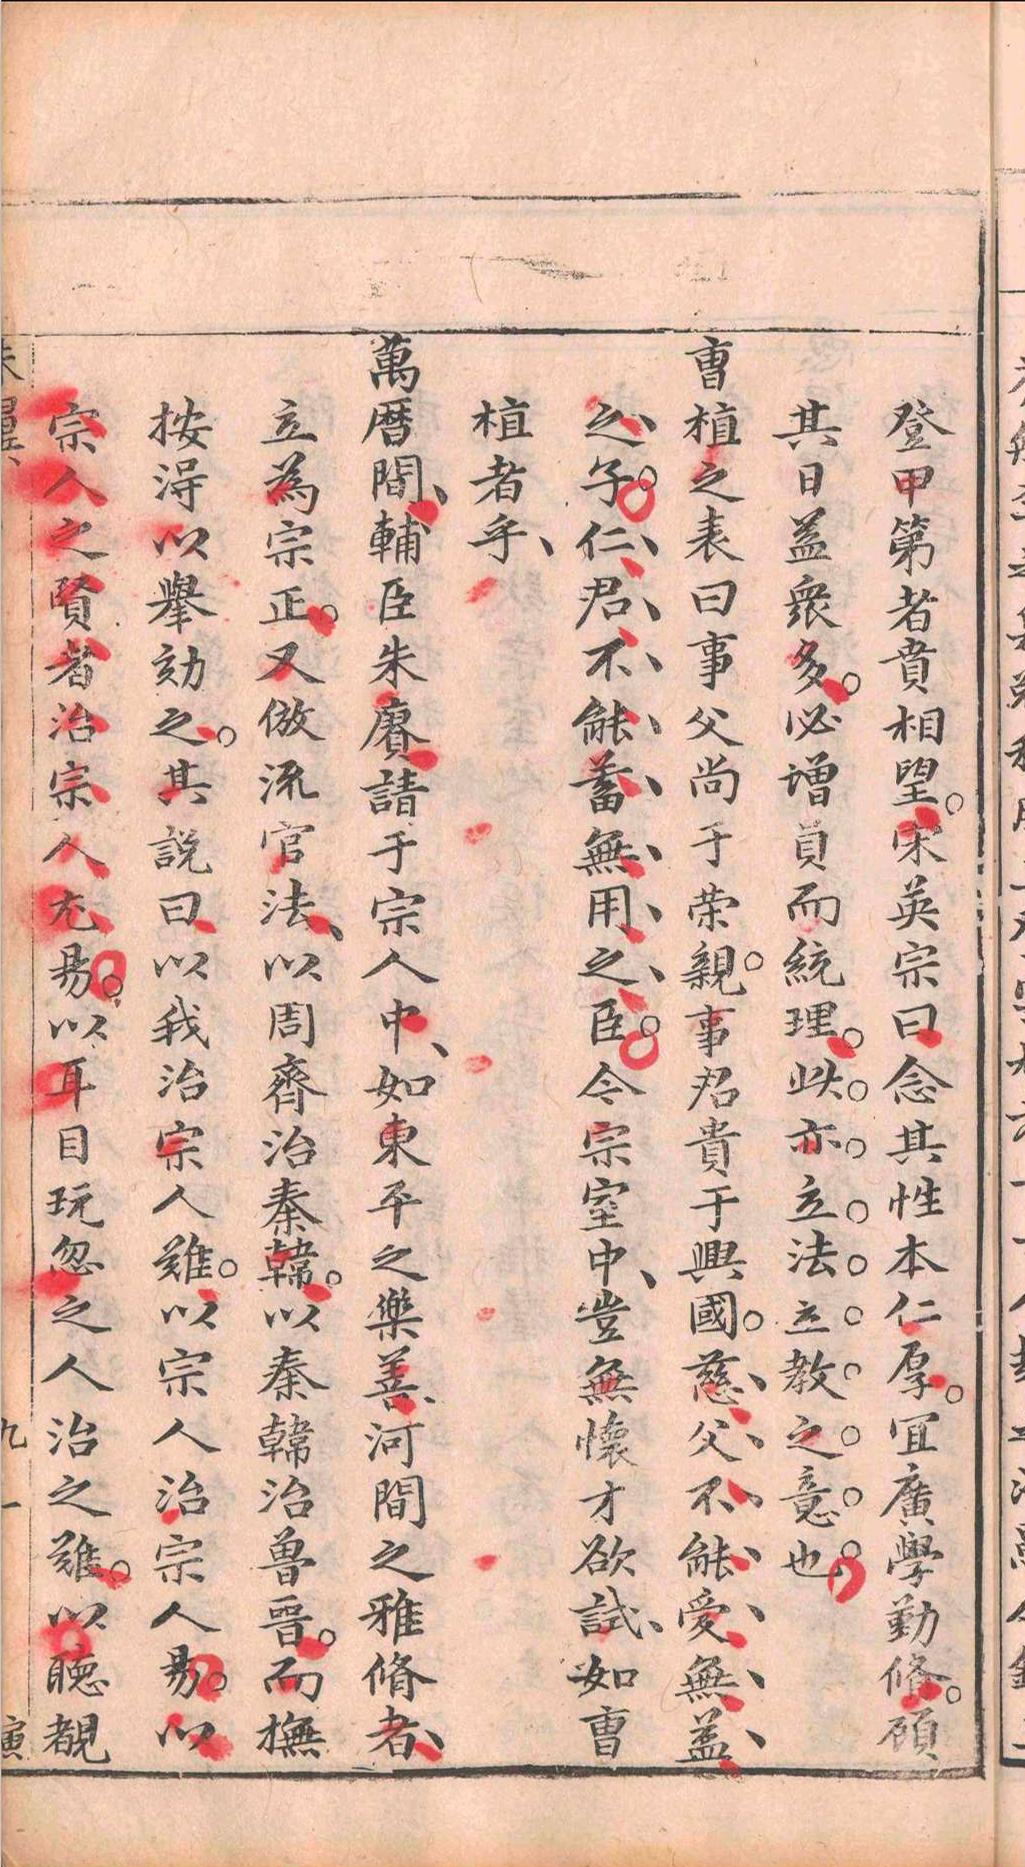 登甲第者賁相望。宋英宗曰念其性本仁厚。宜廣學勤脩。顧
其日益衆多。必增員而統理。此。亦。立。法。立。教。之。意。也。
曹植之表曰事父尚于荣親。事君貴于興國。慈、父、不、能、受、無、益、
之、子。仁、君、不、能、蓄、無、用、之、臣。今宗室中、豈無懷才欲試、如曹
植者乎、
萬曆間、輔臣朱賡請于宗人中、如東平之樂善、河間之雅脩者、
立為宗正。又倣流官法、以周齊治秦韓。以秦韓治魯晉。而撫
按得以舉劾之。其說曰以我治宗人難。以宗人治宗人易。以
宗人之賢者治宗人尤易。以耳目玩忽之人治之難。以聽覩
九一